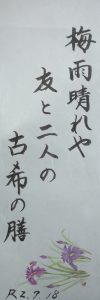 梅雨晴れや
友と二人の
古希の膳
R2.9.18